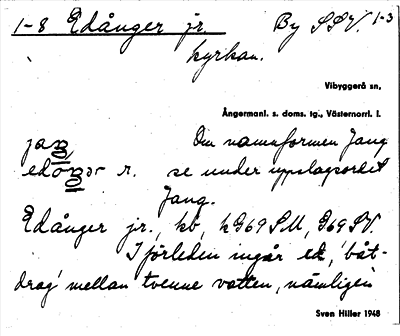 1-8 Edånger jr. By SSV. 1-3
kyrkan.
Vibyggerå sn,
Ångermanl. s. doms. tg., Västernorrl. l.
jaŋ, Om namnformen Jang
edoŋər r. se under uppslagsordet
Jang.
Edånger jr., kb, kG69SM, G69SV.
I förleden ingår ed, 'båt-
drag' mellan tvenne vatten, nämligen
Sven Hiller 1948